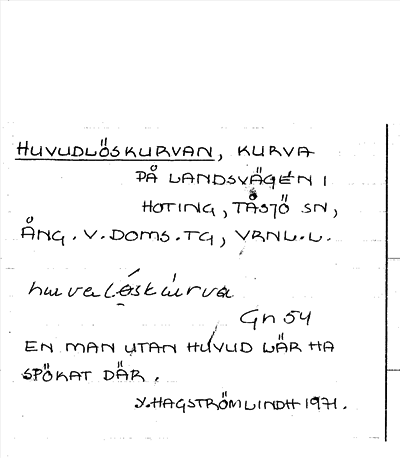 HUVUDLÖSKURVAN, KURVA
PÅ LANDSVÄGEN I
HOTING, TÅSJÖ SN,
ÅNG. V. DOMS. TG, VRNL. L.
huvalöskúrva
Gn 54
EN MAN UTAN HUVUD LÄR HA
SPÖKAT DÄR.
Y. HAGSTRÖM LINDH 1971.